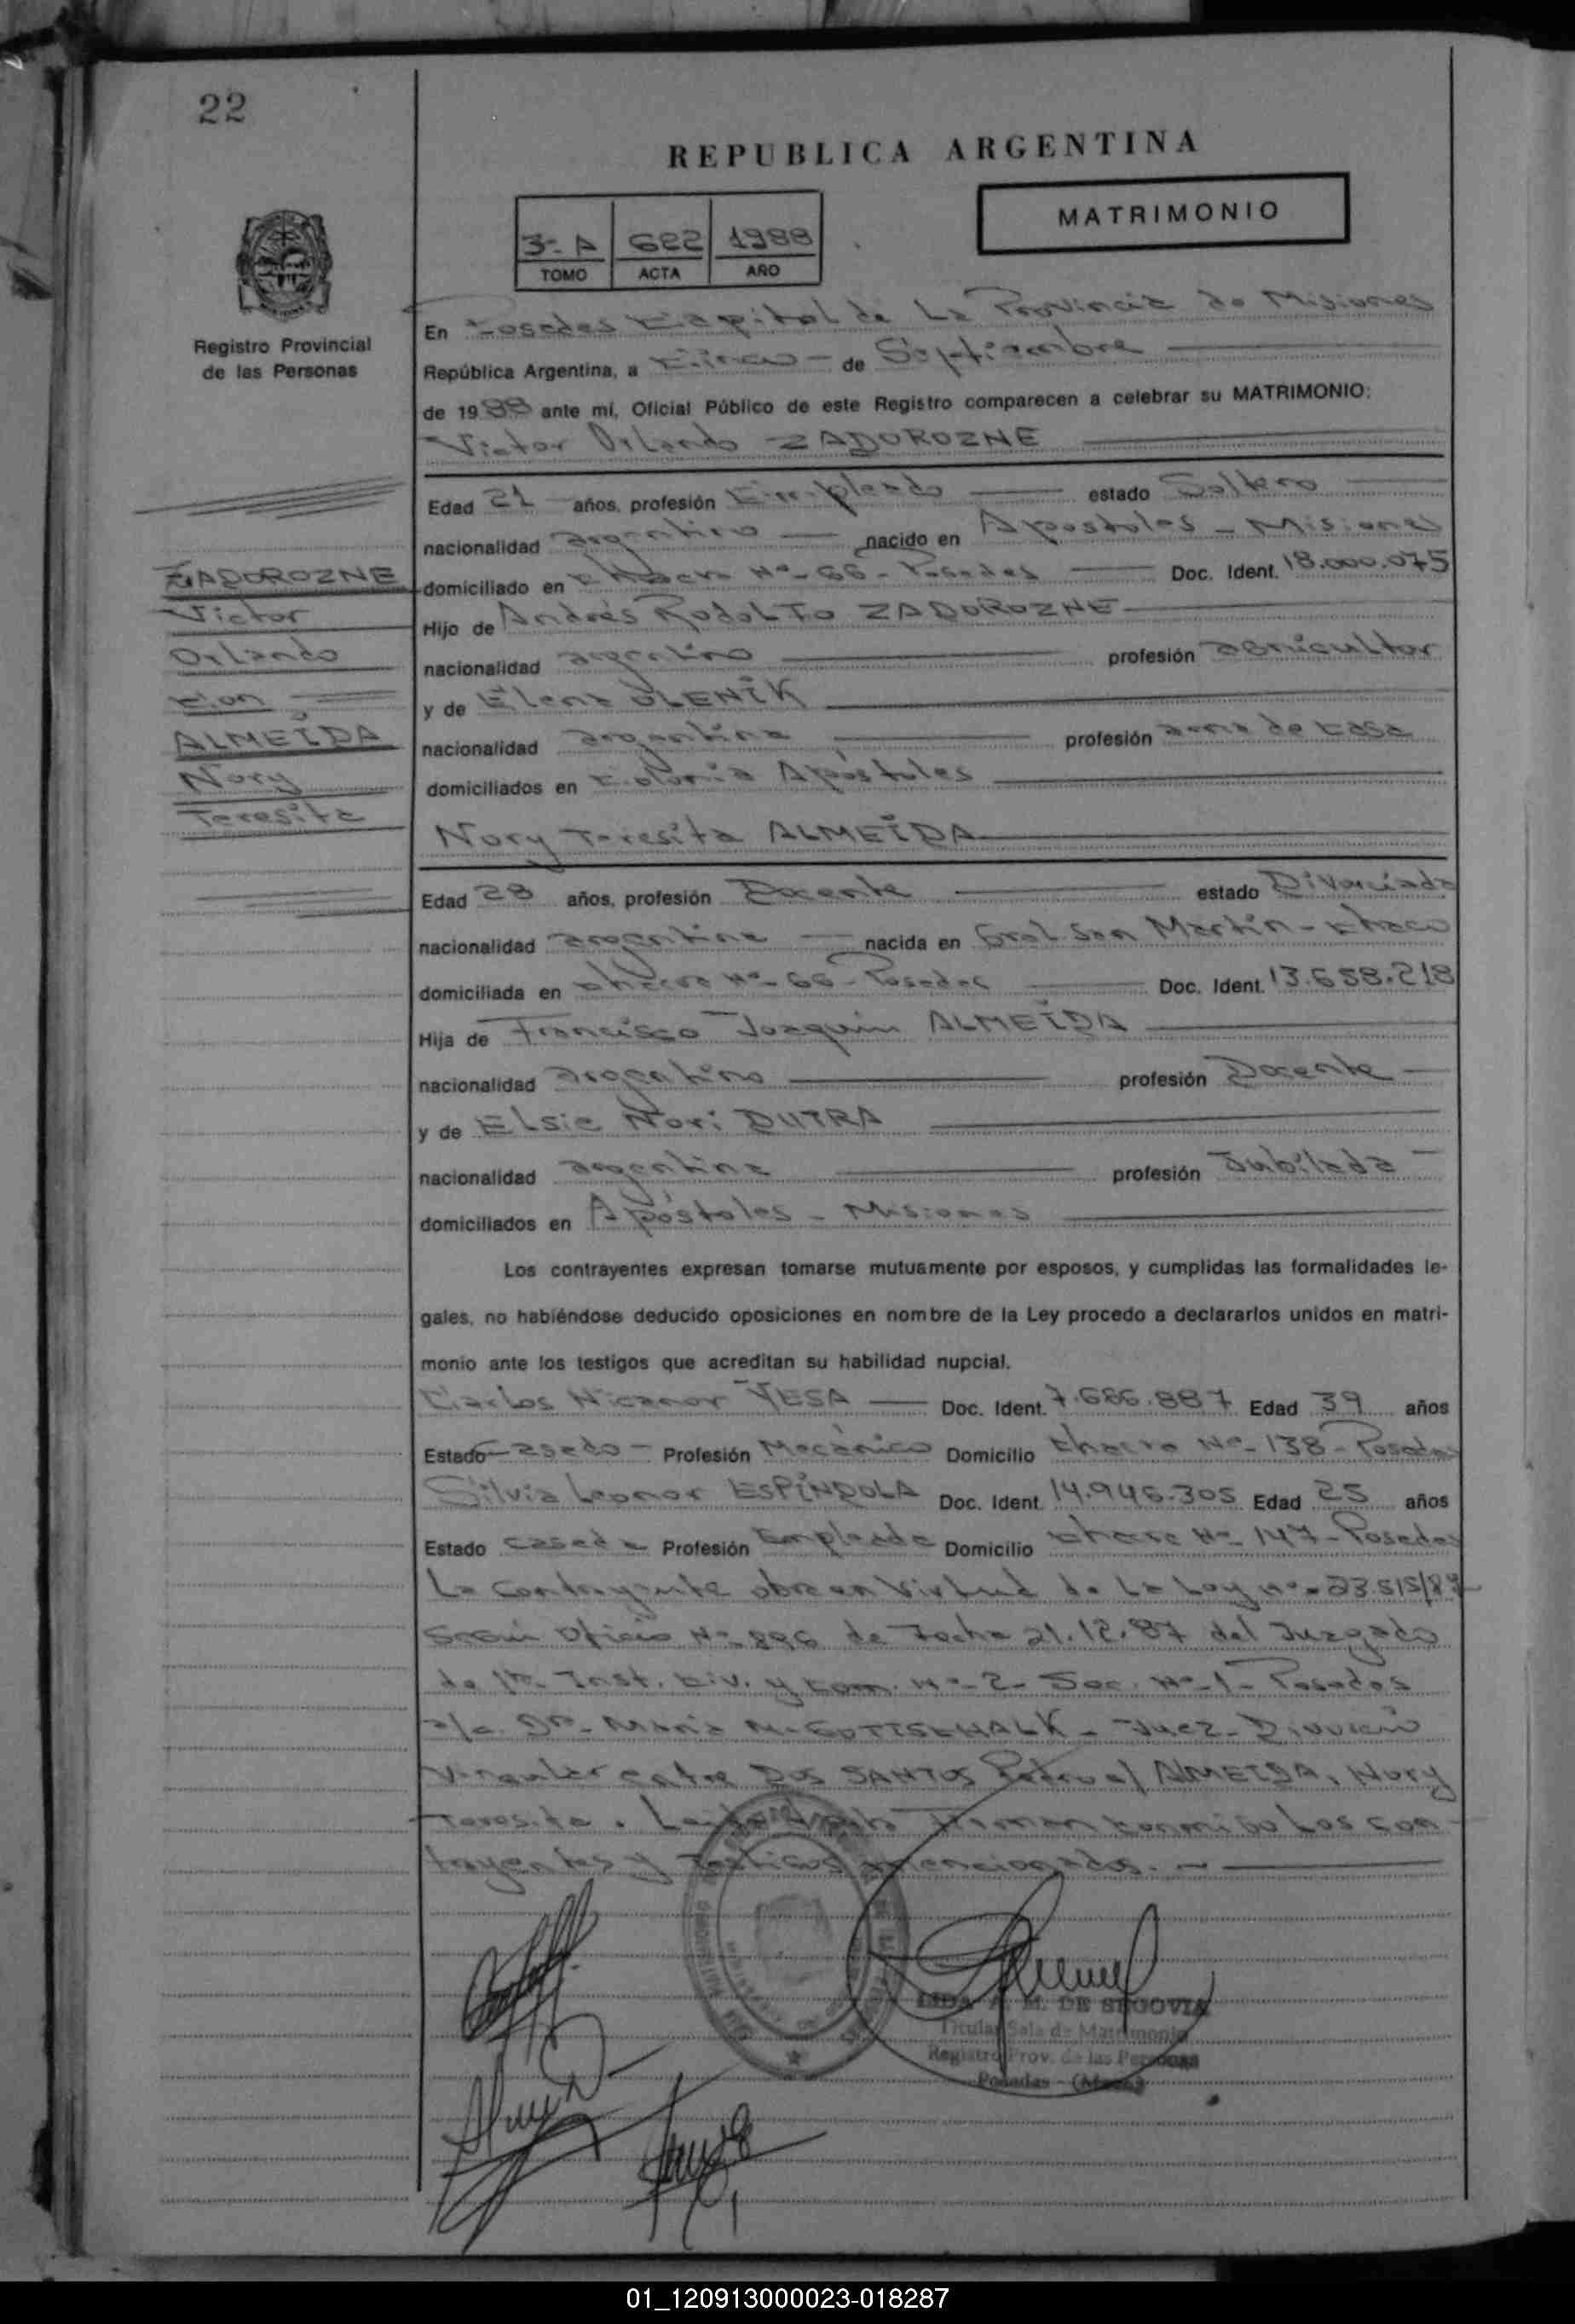 22
REPUBLICA ARGENTINA
MATRIMONIO
3º A 622 1988
TOMO ACTA AÑO
Registro Provincial
de las Personas
En Posadas Capital de La Provincia de Misiones
República Argentina, a Cinco - de Septiembre
de 1988 ante mí, Oficial Público de este Registro comparecen a celebrar su MATRIMONIO:
Victor Orlando ZADOROZNE
Edad 21 años, profesión Empleado estado Soltero
nacionalidad argentino nacido en Apostoles - Misiones
domiciliado en Chacra Nº- 66 - Posadas Doc. Ident. 18.000.075
Hijo de Andrés Rodolfo ZADOROZNE
nacionalidad argentino profesión agricultor
y de Elena OLENIK
nacionalidad argentina profesión ama de casa
domiciliados en Colonia Apóstoles
ZADOROZNE
Victor
Orlando
Con
ALMEIDA
Nory
Teresita
Nory Teresita ALMEIDA
Edad 28 años, profesión Docente estado Divorciada
nacionalidad argentina nacida en Gral San Martín - Chaco
domiciliada en chacra Nº- 66 - Posadas Doc. Ident. 13.658.218
Hija de Francisco Joaquin ALMEIDA
nacionalidad argentino profesión Docente
y de Elsie Nori DUTRA
nacionalidad argentina profesión Jubilada
domiciliados en Apóstoles - Misiones
Los contrayentes expresan tomarse mutuamente por esposos, y cumplidas las formalidades le-
gales, no habiéndose deducido oposiciones en nombre de la Ley procedo a declararlos unidos en matri-
monio ante los testigos que acreditan su habilidad nupcial.
Carlos Nicanor VESA Doc. Ident. 7.686.887 Edad 39 años
Estado Casado - Profesión Mecánico Domicilio Chacra Nº- 138 - Posadas
Silvia Leonor ESPÍNDOLA Doc. Ident. 14.946.305 Edad 25 años
Estado Casada Profesión Empleada Domicilio Chacra Nº- 147 - Posadas
La Contrayente obra en Virtud de La Ley Nº- 23.515/87
Según Oficio Nº- 896 de Fecha 21.12.87 del Juzgado
de 1ra. Inst. Civ. y Com. Nº- 2- Sec. Nº- 1- Posadas
a/c. Dra- María M. GOTTSCHALK - Juez - Divorcio
Vincular entre DOS SANTOS Pedro c/ ALMEIDA, Nory
Teresita. Leída Acta Firman conmigo Los con-
trayentes y testigos mencionados.
LIDA A. M. DE SEGOVIA
Titular Sala de Matrimonio
Registro Prov. de las Personas
Posadas - (Mnes)
01_120913000023-018287